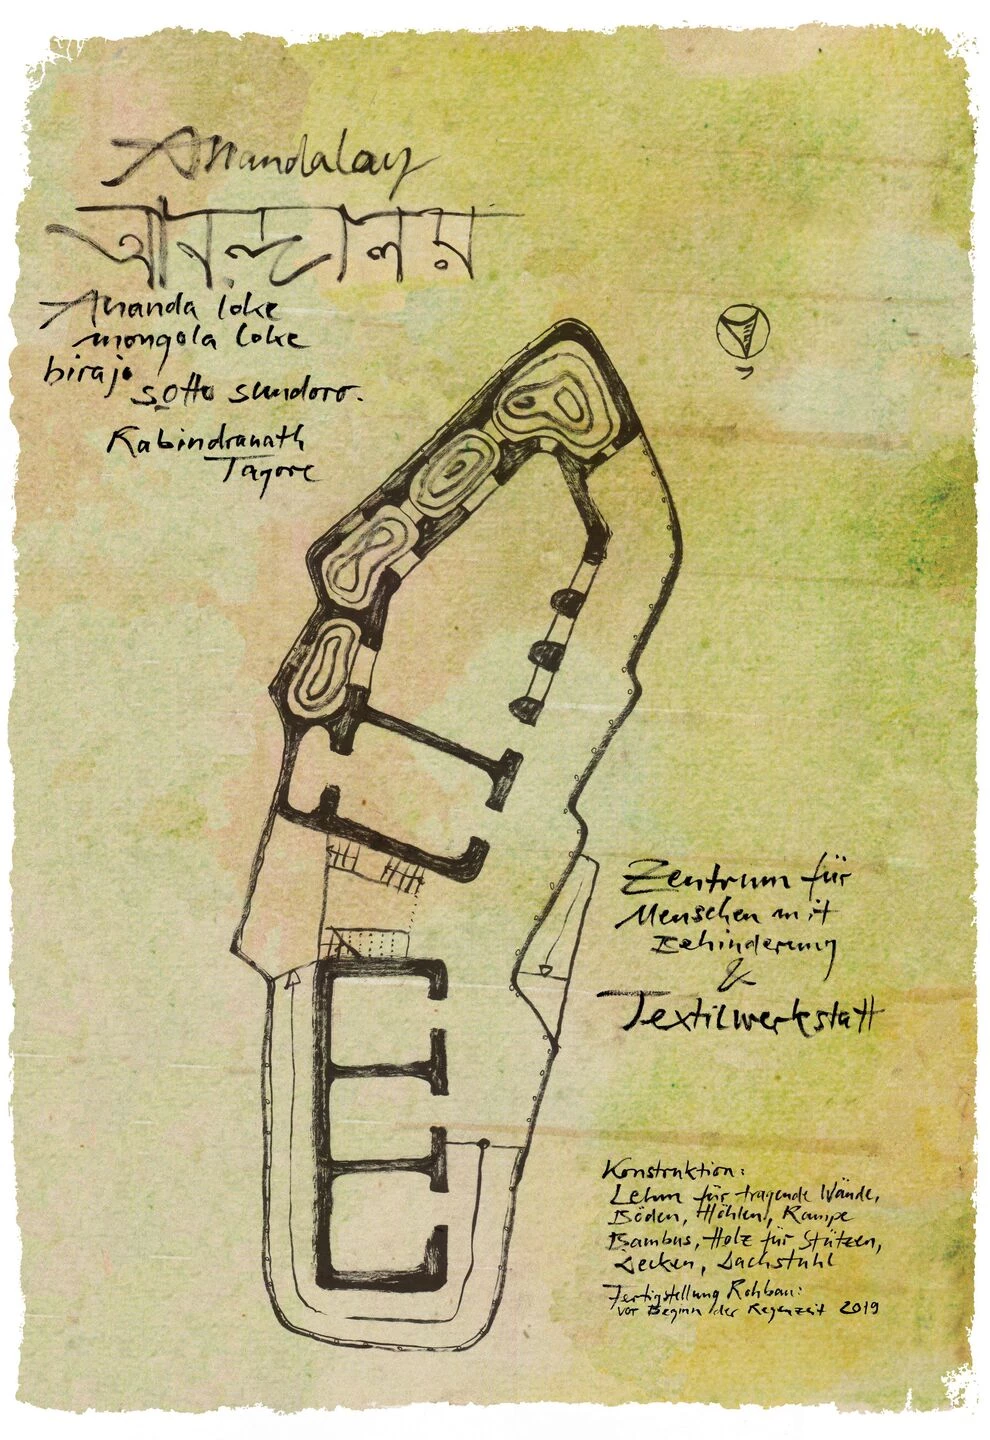 Anandalay
আনন্দালয়
Ananda loke
mongola loke
birajo
sotto sundoro.
Rabindranath
Tagore
Zentrum für
Menschen mit
Behinderung
&
Textilwerkstatt
Konstruktion:
Lehm für tragende Wände,
Böden, Höhlen, Rampe
Bambus, Holz für Stützen,
Decken, Dachstuhl
Fertigstellung Rohbau:
vor Beginn der Regenzeit 2019